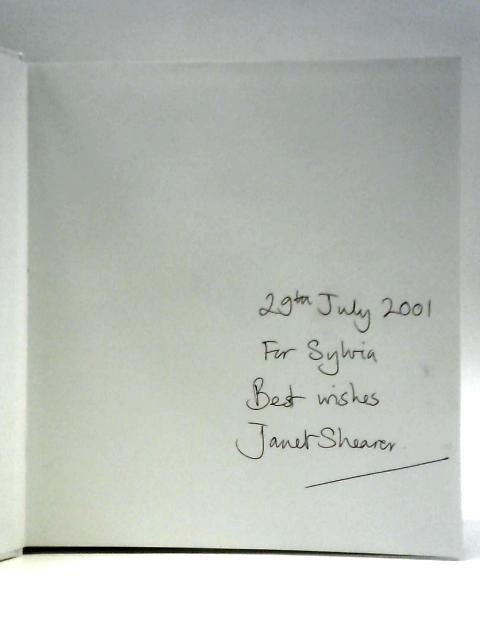 29th July 2001
For Sylvia
Best wishes
Janet Shearer